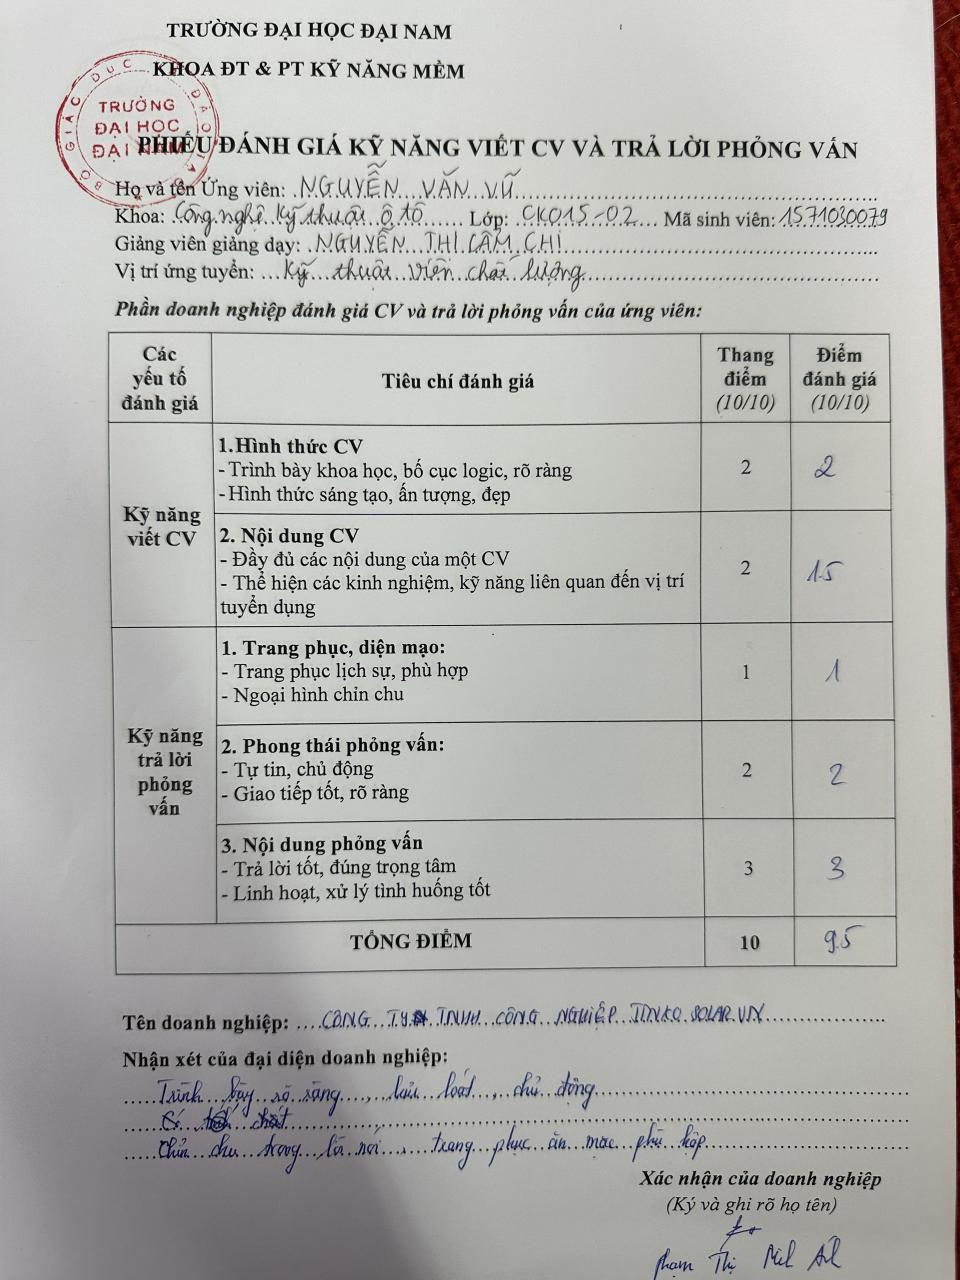 TRƯỜNG ĐẠI HỌC ĐẠI NAM
KHOA ĐT & PT KỸ NĂNG MỀM
BỘ GIÁO DỤC ĐÀO TẠO
TRƯỜNG
ĐẠI HỌC
ĐẠI NAM
PHIẾU ĐÁNH GIÁ KỸ NĂNG VIẾT CV VÀ TRẢ LỜI PHỎNG VẤN
Họ và tên Ứng viên: NGUYỄN VĂN VŨ
Khoa: Công nghệ Kỹ thuật ô tô Lớp: CKO15-02 Mã sinh viên: 1571030079
Giảng viên giảng dạy: NGUYỄN THỊ CẨM CHI
Vị trí ứng tuyển: Kỹ thuật viên chất lượng
Phần doanh nghiệp đánh giá CV và trả lời phỏng vấn của ứng viên:
Các yếu tố đánh giá Tiêu chí đánh giá Thang điểm (10/10) Điểm đánh giá (10/10)
Kỹ năng viết CV
1.Hình thức CV
- Trình bày khoa học, bố cục logic, rõ ràng 2 2
- Hình thức sáng tạo, ấn tượng, đẹp
2. Nội dung CV
- Đầy đủ các nội dung của một CV
- Thể hiện các kinh nghiệm, kỹ năng liên quan đến vị trí 2 1.5
tuyển dụng
Kỹ năng trả lời phỏng vấn
1. Trang phục, diện mạo:
- Trang phục lịch sự, phù hợp 1 1
- Ngoại hình chỉn chu
2. Phong thái phỏng vấn:
- Tự tin, chủ động 2 2
- Giao tiếp tốt, rõ ràng
3. Nội dung phỏng vấn
- Trả lời tốt, đúng trọng tâm 3 3
- Linh hoạt, xử lý tình huống tốt
TỔNG ĐIỂM 10 9.5
Tên doanh nghiệp: CÔNG TY TNHH CÔNG NGHIỆP JINKO SOLAR VN
Nhận xét của đại diện doanh nghiệp:
Trình bày rõ ràng, lưu loát, chủ động
Có chất
Chỉn chu trong lời nói, trang phục ăn mặc phù hợp
Xác nhận của doanh nghiệp
(Ký và ghi rõ họ tên)
Phạm Thị